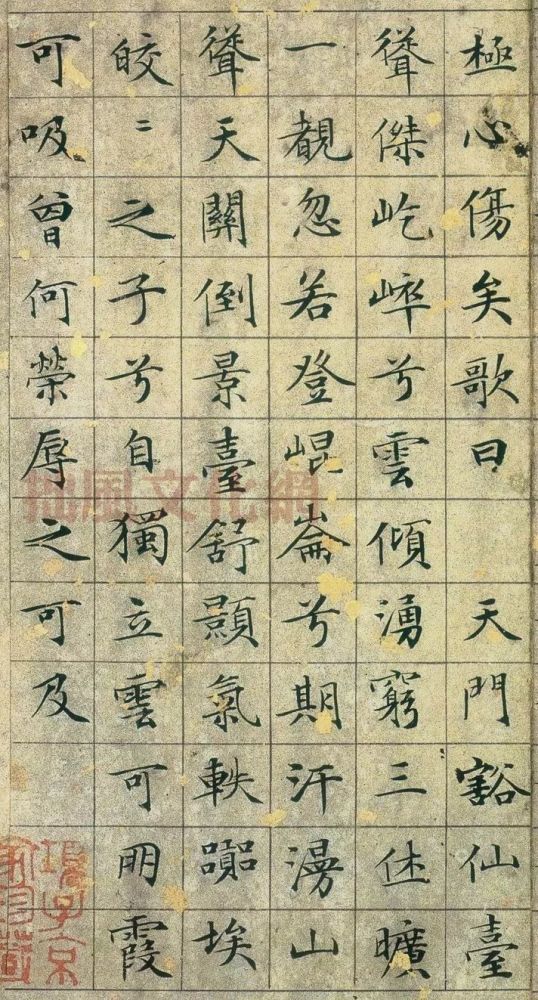 極心傷矣歌曰 天門豁仙臺
聳傑屹崒兮雲傾湧窮三休曠
一覩忽若登崐崙兮期汗漫山
聳天關倒景臺舒顥氣軼囂埃
皎〻之子兮自獨立雲可朋霞
可吸曾何榮辱之可及
項子京
家珍藏
拙風文化網